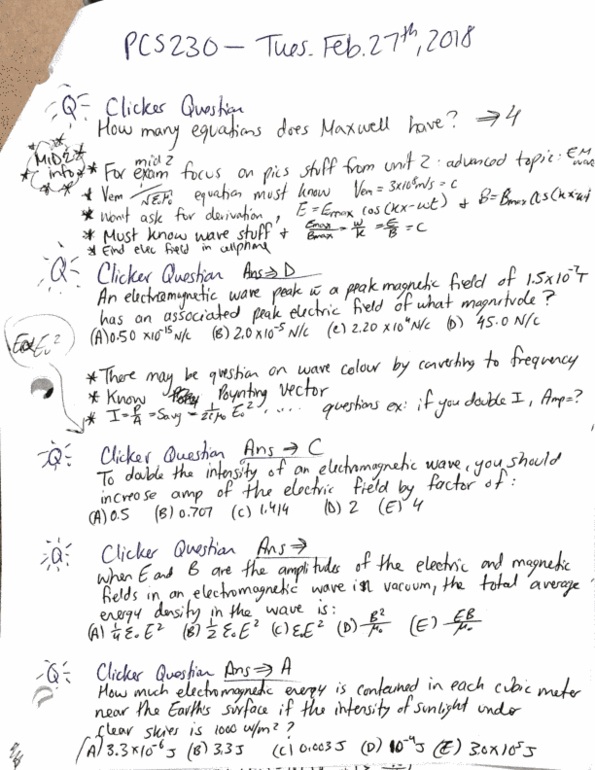 PCS230 — Tues. Feb. 27th, 2018
Q Clicker Question
How many equations does Maxwell have? ⇒ 4
MID 2 info
* For mid 2 exam focus on pics stuff from unit 2: advanced topic: EM wave
* Vem = 1/√ε₀μ₀ equation must know Vem = 3x10⁸ m/s = c
* Wont ask for derivation, E = Emax cos(kx-wt) & B = Bmax cos(kx-wt)
* Must know wave stuff & Emax/Bmax = w/k = E/B = C
* Find elec field in cellphone
Q Clicker Question Ans ⇒ D
An electromagnetic wave peak w a peak magnetic field of 1.5x10⁻⁷T
has an associated peak electric field of what magnitude?
(A) 0.50 x10⁻¹⁵ N/c (B) 2.0x10⁻⁵ N/c (C) 2.20 x10⁴ N/c (D) 45.0 N/c
* There may be question on wave colour by converting to frequency
* Know Poynting vector
* I = P/A = Savg = 1/2cμ₀ E₀², .... questions ex: if you double I, Amp=?
Q Clicker Question Ans → C
To double the intensity of an electromagnetic wave, you should
increase amp of the electric field by factor of:
(A) 0.5 (B) 0.707 (C) 1.414 (D) 2 (E) 4
Q Clicker Question Ans ⇒
When E and B are the amplitudes of the electric and magnetic
fields in an electromagnetic wave is in vacuum, the total average
energy density in the wave is:
(A) 1/4 ε₀E² (B) 1/2 ε₀E² (C) ε₀E² (D) B²/μ₀ (E) EB/μ₀
Q Clicker Question Ans ⇒ A
How much electromagnetic energy is contained in each cubic meter
near the Earth's surface if the intensity of sunlight under
clear skies is 1000 w/m²?
(A) 3.3x10⁻⁶ J (B) 3.3 J (C) 0.003 J (D) 10⁻⁴ J (E) 30x10⁵ J